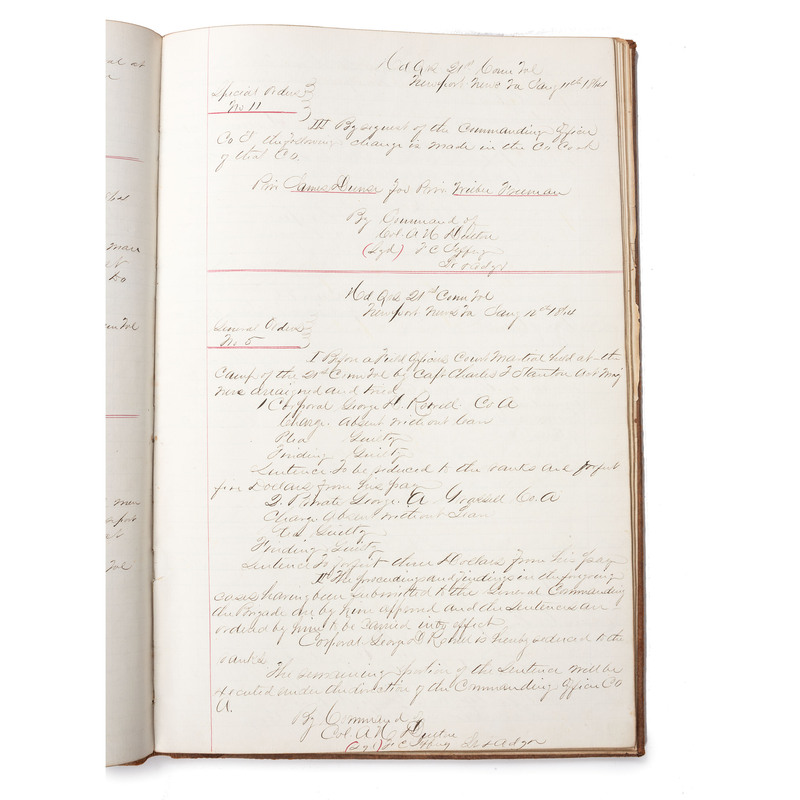 Hd Qrs 21st Conn Vol
Newport News Va Jany 11th 1864
Special Orders
No. 11
III By request of the Commanding Officer
Co the following change is made in the Co Cook
of that Co.
Priv. James for Priv. Wilber Freeman
By Command of
Col. A H Dutton
(Sgd)
Hd Qrs 21st Conn Vol
Newport News Va Jany 1864
General Orders
No 5
I Before a Field Officers Court Martial held at the
Camp of the 21st Conn Vol by Capt Charles T Stanton Act Maj
were arraigned and tried
1 Corporal George Co A
Charge. Absent without leave
Plea Guilty
Finding Guilty
Sentence To be reduced to the ranks and forfeit
five Dollars from his pay
2. Private George A. Co. A
Charge Absent without Leave
Plea Guilty
Finding Guilty
Sentence To forfeit three Dollars from his pay
II The proceedings and findings in the foregoing
cases having been submitted to the General Commanding
the Brigade are by him approved and the Sentences are
ordered by him to be carried into effect
Corporal George is hereby reduced to the
ranks
The remaining portion of the Sentence will be
executed under the direction of the Commanding Officer Co
A.
By Command of
Col. A H Dutton
(Sgd)